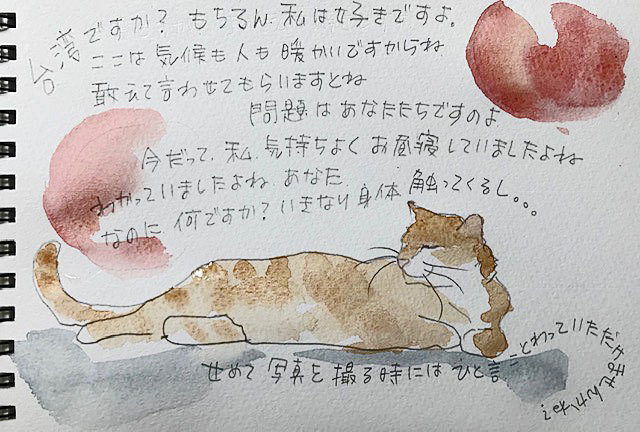 台湾ですか？もちろん 私は好きですよ。
ここは 気候も人も 暖かいですからね
敢えて言わせてもらいますとね
問題は あなたたちですのよ
今だって、私、気持ちよく お昼寝していましたよね
わかっていましたよね、あなた、
なのに 何ですか？いきなり 身体 触ってくるし。。。
せめて 写真を 撮る時には ひと言 ことわっていただけません